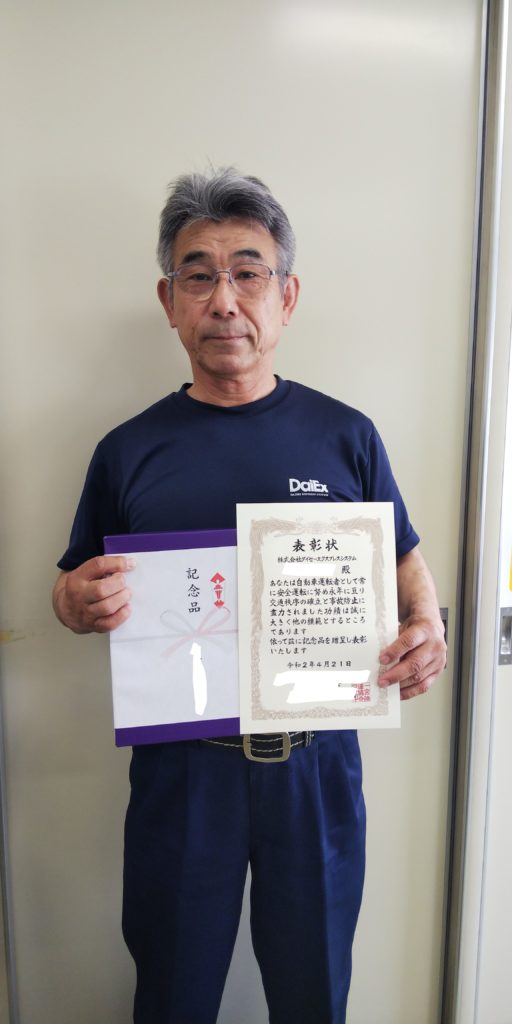 DaiEx
記念品
表彰状
株式会社ダイセーエクスプレスシステム
殿
あなたは自動車運転者として常
に安全運転に努め永年に亘り
交通秩序の確立と事故防止に
盡力されました功績は誠に
大きく他の模範とするところ
であります
依って茲に記念品を贈呈し表彰
いたします
令和2年4月21日